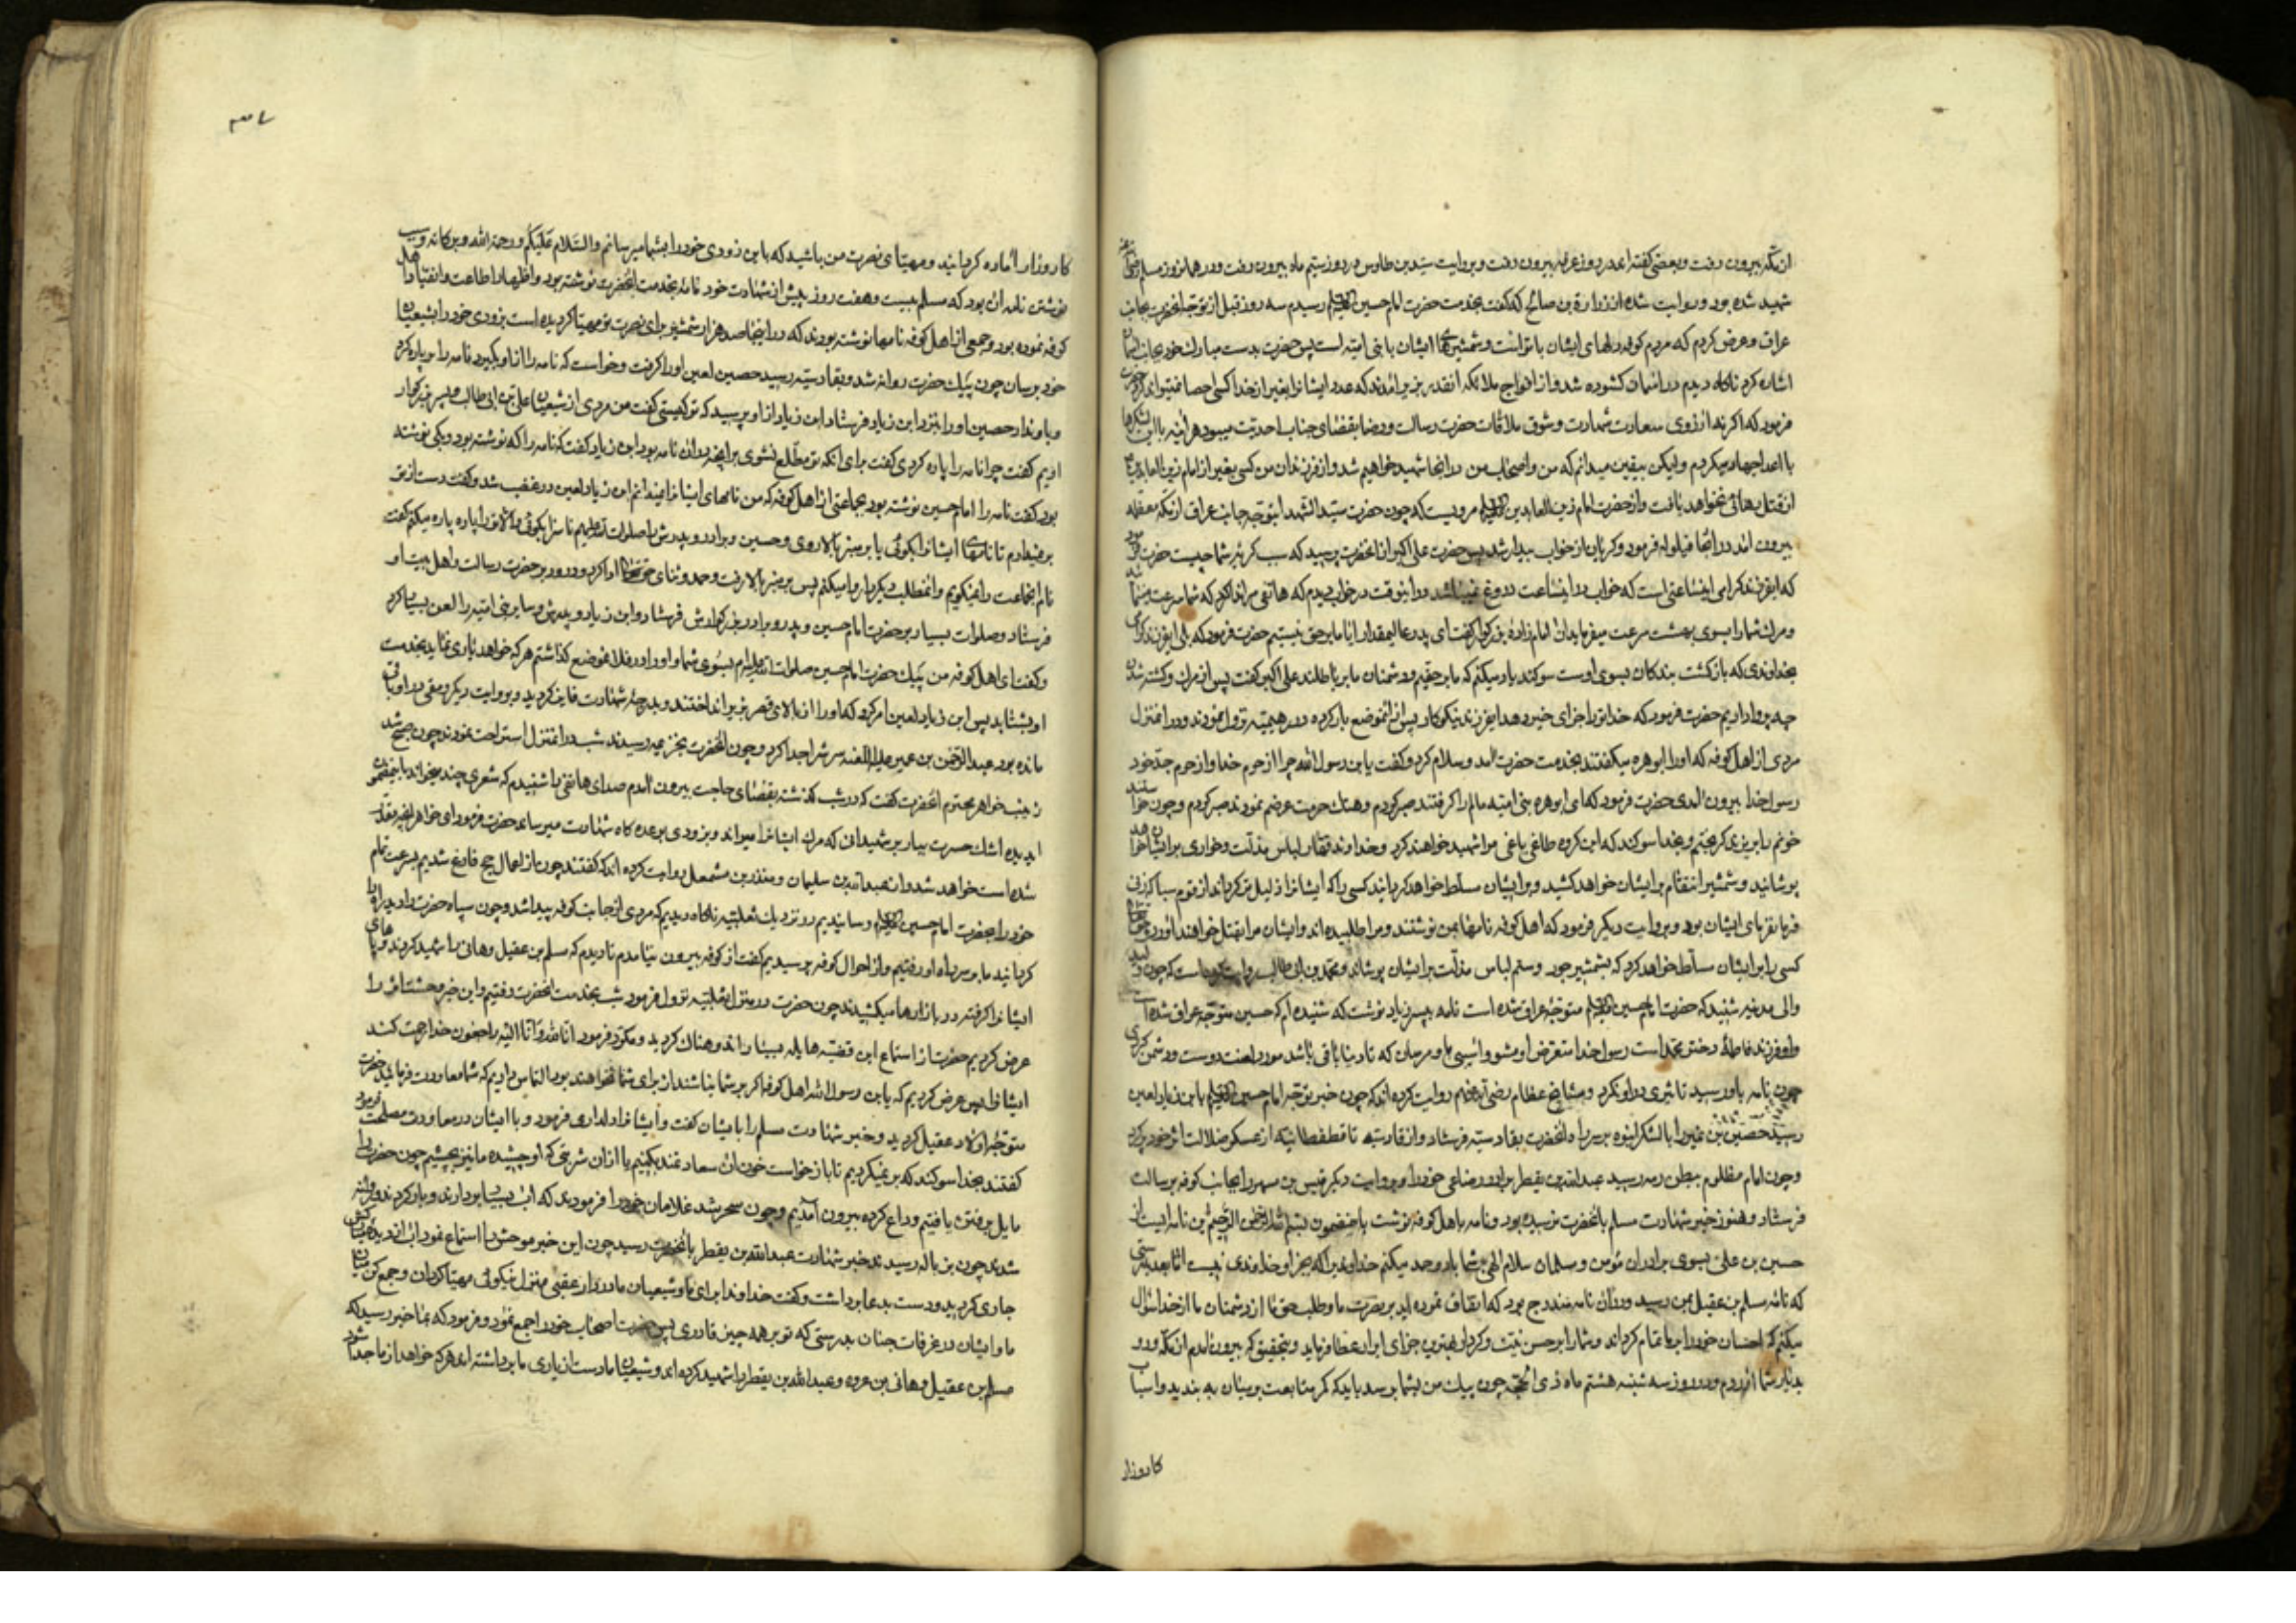 از مکه بیرون رفت و بعضی گفته‌اند در روز عرفه بیرون رفت و بروایت سید بن طاوس در روز سیم ماه بیرون رفت و در همانروز مسلم
شهید شده بود و روایت شده از زرارة بن صالح که گفت بخدمت حضرت امام حسین رسیدم سه روز قبل از توجه انحضرت بجانب
عراق و عرض کردم که مردم کوفه دلهای ایشان با تو است و شمشیرهای ایشان با بنی امیه است پس حضرت بدست مبارک خود بجانب آسمان
اشاره کرد ناگاه دیدم در آسمان گشوده شد و از افواج ملائکه انقدر بزیر آمدند که عدد ایشانرا بغیر از خدا کسی احصا نمیتواند کرد حضرت
فرمود که اگر نه ارزوی سعادت شهادت و شوق ملاقات حضرت رسالت و رضا بقضای جناب احدیت میبود هراینه با این لشکرها
با اعدا جهاد میکردم ولیکن بیقین میدانم که من و اصحاب من در آنجا شهید خواهیم شد و از فرزندان من کسی بغیر از امام زین العابدین
از قتل رهائی نخواهد یافت و از حضرت امام زین العابدین مرویست که چون حضرت سید الشهدا متوجه جانب عراق از مکه معظمه
بیرون آمد در آنجا قیلوله فرمود و گریان از خواب بیدار شد پس حضرت علی اکبر از انحضرت پرسید که سبب گریه شما چیست حضرت فرمود
که ایفرزند گرامی اینساعتی است که خواب در اینساعت دروغ نمیباشد در اینوقت در خواب دیدم که هاتفی مرا ندا کرد که شما سرعت مینمائید
و مرگ شما را بسوی بهشت سرعت میفرماید ان امام زاده بزرگوار گفت ای پدر عالیمقدار ایا ما بر حق نیستیم حضرت فرمود که بلی ایفرزند گرامی
بخداوندی که بازگشت بندگان بسوی اوست سوگند یاد میکنم که ما بر حقیم و دشمنان ما بر باطلند علی اکبر گفت پس از مرگ و کشته شدن
چه پروا داریم حضرت فرمود که خدا ترا جزای خیر دهد ایفرزند نیکوکار پس از انموضع بار کرده در رهیمیه نزول نمودند و در انمنزل
مردی از اهل کوفه که او را ابو هره میگفتند بخدمت حضرت آمد و سلام کرد و گفت یا بن رسول الله چرا از حرم خدا و از حرم جد خود
رسول خدا بیرون آمدی حضرت فرمود که ای ابو هره بنی امیه مالم را گرفتند صبر کردم و هتک حرمت عرضم نمودند صبر کردم و چون خواستند
خونم را بریزند گریختم و بخدا سوگند که این گروه طاغی باغی مرا شهید خواهند کرد و خداوند قهار لباس مذلت و خواری بر ایشان خواهد
پوشانید و شمشیر انتقام بر ایشان خواهد کشید و بر ایشان مسلط خواهد گردانید کسی را که ایشانرا ذلیل تر گرداند از قوم سبا که زنی
فرمانفرمای ایشان بود و بروایت دیگر فرمود که اهل کوفه نامها بمن نوشتند و مرا طلبیده‌اند و ایشان مرا بقتل خواهند آورد حق تعالی
کسی را بر ایشان مسلط خواهد کرد که بشمشیر جور و ستم لباس مذلت بر ایشان پوشاند و محمد بن ابی طالب روایت کرده است که چون ولید
والی مدینه شنید که حضرت امام حسین متوجه عراق شده است نامه بپسر زیاد نوشت که شنیده‌ام که حسین متوجه عراق شده است
و او فرزند فاطمه دختر محمد است رسول خدا متعرض او مشو و اسیبی باو مرسان که تا دنیا باقی باشد مورد لعنت دوست و دشمن گردی
چون نامه باو رسید تاثیری در او نکرد و مشایخ عظام رضی الله عنهم روایت کرده‌اند که چون خبر توجه امام حسین بابن زیاد لعین
رسید حصین بن نمیر را با لشکر انبوه بر سر راه انحضرت بقادسیه فرستاد و از قادسیه تا قطقطانیه از عسکر ضلالت اثر خود پر کرد
و چون امام مظلوم ببطن رمه رسید عبدالله بن یقطر برادر رضاعی خود را و بروایت دیگر قیس بن مسهر را بجانب کوفه برسالت
فرستاد و هنوز خبر شهادت مسلم بانحضرت نرسیده بود و نامه باهل کوفه نوشت باینمضمون بسم الله الرحمن الرحیم این نامه ایست از
حسین بن علی بسوی برادران مؤمن و مسلمان سلام الهی بر شما باد و حمد میکنم خداوندیرا که بجز او خداوندی نیست اما بعد بدرستی
که نامه مسلم بن عقیل بمن رسید و در ان نامه مندرج بود که اتفاق نموده‌اید بر نصرت ما و طلب حق ما از دشمنان ما از خدا سؤال
میکنم که احسان خود را بر ما تمام گرداند و شما را بر حسن نیت و کردار بهترین جزای ابرار عطا فرماید و بتحقیق که بیرون آمدم از مکه و رو
بدیار شما آوردم در روز سه شنبه هشتم ماه ذی الحجه چون پیک من بشما برسد باید که کمر متابعت بر میان به بندید و اسباب
کارزار
۳۷
کارزار اماده گردانید و مهیای نصرت من باشید که باین زودی خود را بشما میرسانم والسلام علیکم ورحمة الله وبرکاته و سبب
نوشتن نامه ان بود که مسلم بیست و هفت روز پیش از شهادت خود نامه بخدمت انحضرت نوشته بود و اظهار اطاعت و انقیاد اهل
کوفه نموده بود و جمعی از اهل کوفه نامها نوشته بودند که در اینجا صد هزار شمشیر برای نصرت تو مهیا گردیده است بزودی خود را بشیعیان
خود برسان چون پیک حضرت روانه شد و بقادسیه رسید حصین لعین او را گرفت و خواست که نامه را از او بگیرد نامه را پاره کرد
و باو نداد حصین او را بنزد ابن زیاد فرستاد ابن زیاد از او پرسید که تو کیستی گفت من مردی از شیعیان علی بن ابی طالب و پسر بزرگوار
اویم گفت چرا نامه را پاره کردی گفت برای انکه تو مطلع نشوی بر انچه در ان نامه بود ابن زیاد گفت که نامه را که نوشته بود و بکی نوشته
بود گفت نامه را امام حسین نوشته بود بجماعتی از اهل کوفه که من نامهای ایشانرا نمیدانم ابن زیاد لعین در غضب شد و گفت دست از تو
بر نمیدارم تا نامهای ایشانرا بگوئی یا بر منبر بالا روی و حسین و برادر و پدرش را ناسزا بگوئی والا ترا پاره پاره میکنم گفت
نام انجماعت را نمیگویم و انمطلب دیگر را روا میکنم پس بر منبر بالا رفت و حمد و ثنای حق تعالی ادا کرد و درود بر حضرت رسالت و اهل بیت او
فرستاد و صلوات بسیار بر حضرت امام حسین و پدر و برادر بزرگوارش فرستاد و ابن زیاد و پدرش و سایر بنی امیه را لعن بسیار کرد
و گفت ای اهل کوفه من پیک حضرت امام حسین صلوات الله علیه‌ام بسوی شما و او را در فلان موضع گذاشتم هر که خواهد یاری نماید بخدمت
او بشتابد پس ابن زیاد لعین امر کرد که او را از بالای قصر بزیر انداختند و بدرجه شهادت فایز گردید و بروایت دیگر رمقی در او باقی
مانده بود عبد الرحمن بن عمیر علیه اللعنه سرش را جدا کرد و چون انحضرت بخزیمیه رسیدند شب در انمنزل استراحت نمودند چون صبح شد
زینب خواهر محترم انحضرت گفت که در شب گذشته بقضای حاجت بیرون آمدم صدای هاتفی را شنیدم که شعری چند میخواند باینمضمون
ایدیده اشک حسرت ببار بر شهیدانی که مرگ ایشانرا میراند و بزودی بوعده گاه شهادت میرساند حضرت فرمود ای خواهر انچه مقدر
شده است خواهد شد و از عبدالله بن سلیمان و منذر بن مشمعل روایت کرده‌اند که گفتند چون از اعمال حج فارغ شدیم بسرعت تمام
خود را بحضرت امام حسین رسانیدیم در نزدیک ثعلبیه ناگاه دیدیم که مردی از جانب کوفه پیدا شد و چون سپاه حضرت را دید راه را
گردانید ما بر سر راه او رفتیم و از احوال کوفه پرسیدیم گفت از کوفه بیرون نیامدم تا دیدم که مسلم بن عقیل و هانی را شهید کردند و پاهای
ایشانرا گرفته در بازارها میکشیدند چون حضرت در منزل ثعلبیه نزول فرمود شب بخدمت انحضرت رفتیم و این خبر وحشت اثر را
عرض کردیم حضرت از استماع این قضیه هایله بسیار اندوهناک گردید و مکرر فرمود انا لله وانا الیه راجعون خدا رحمت کند
ایشانرا پس عرض کردیم که یا بن رسول الله اهل کوفه اگر بر شما نباشند از برای شما نخواهند بود التماس داریم که شما معاودت فرمائید حضرت
متوجه اولاد عقیل گردید و خبر شهادت مسلم را بایشان گفت و ایشانرا دلداری فرمود و با ایشان در معاودت مصلحت فرمود
گفتند بخدا سوگند که بر نمیگردیم تا باز خواست خون ان سعادتمند بکنیم یا از ان شربتی که او چشیده ما نیز بچشیم چون حضرت را
مایل برفتن یافتیم وداع کرده بیرون آمدیم و چون سحر شد غلامان خود را فرمودند که اب بسیار بردارند و بار کردند و روانه
شدند چون بزباله رسیدند خبر شهادت عبدالله بن یقطر بانحضرت رسید چون این خبر موحش را استماع نمود اب از دیده مبارکش
جاری گردید و دست بدعا برداشت و گفت خداوندا برای ما و شیعیان ما در دار عقبی منزل نیکوئی مهیا گردان و جمع کن میان
ما و ایشان در غرفات جنان بدرستی که تو بر همه چیز قادری پس حضرت اصحاب خود را جمع نمود و فرمود که بما خبر رسید که
مسلم بن عقیل و هانی بن عروه و عبدالله بن یقطر را شهید کرده‌اند و شیعیان ما دست از یاری ما برداشته‌اند هر که خواهد از ما جدا شود